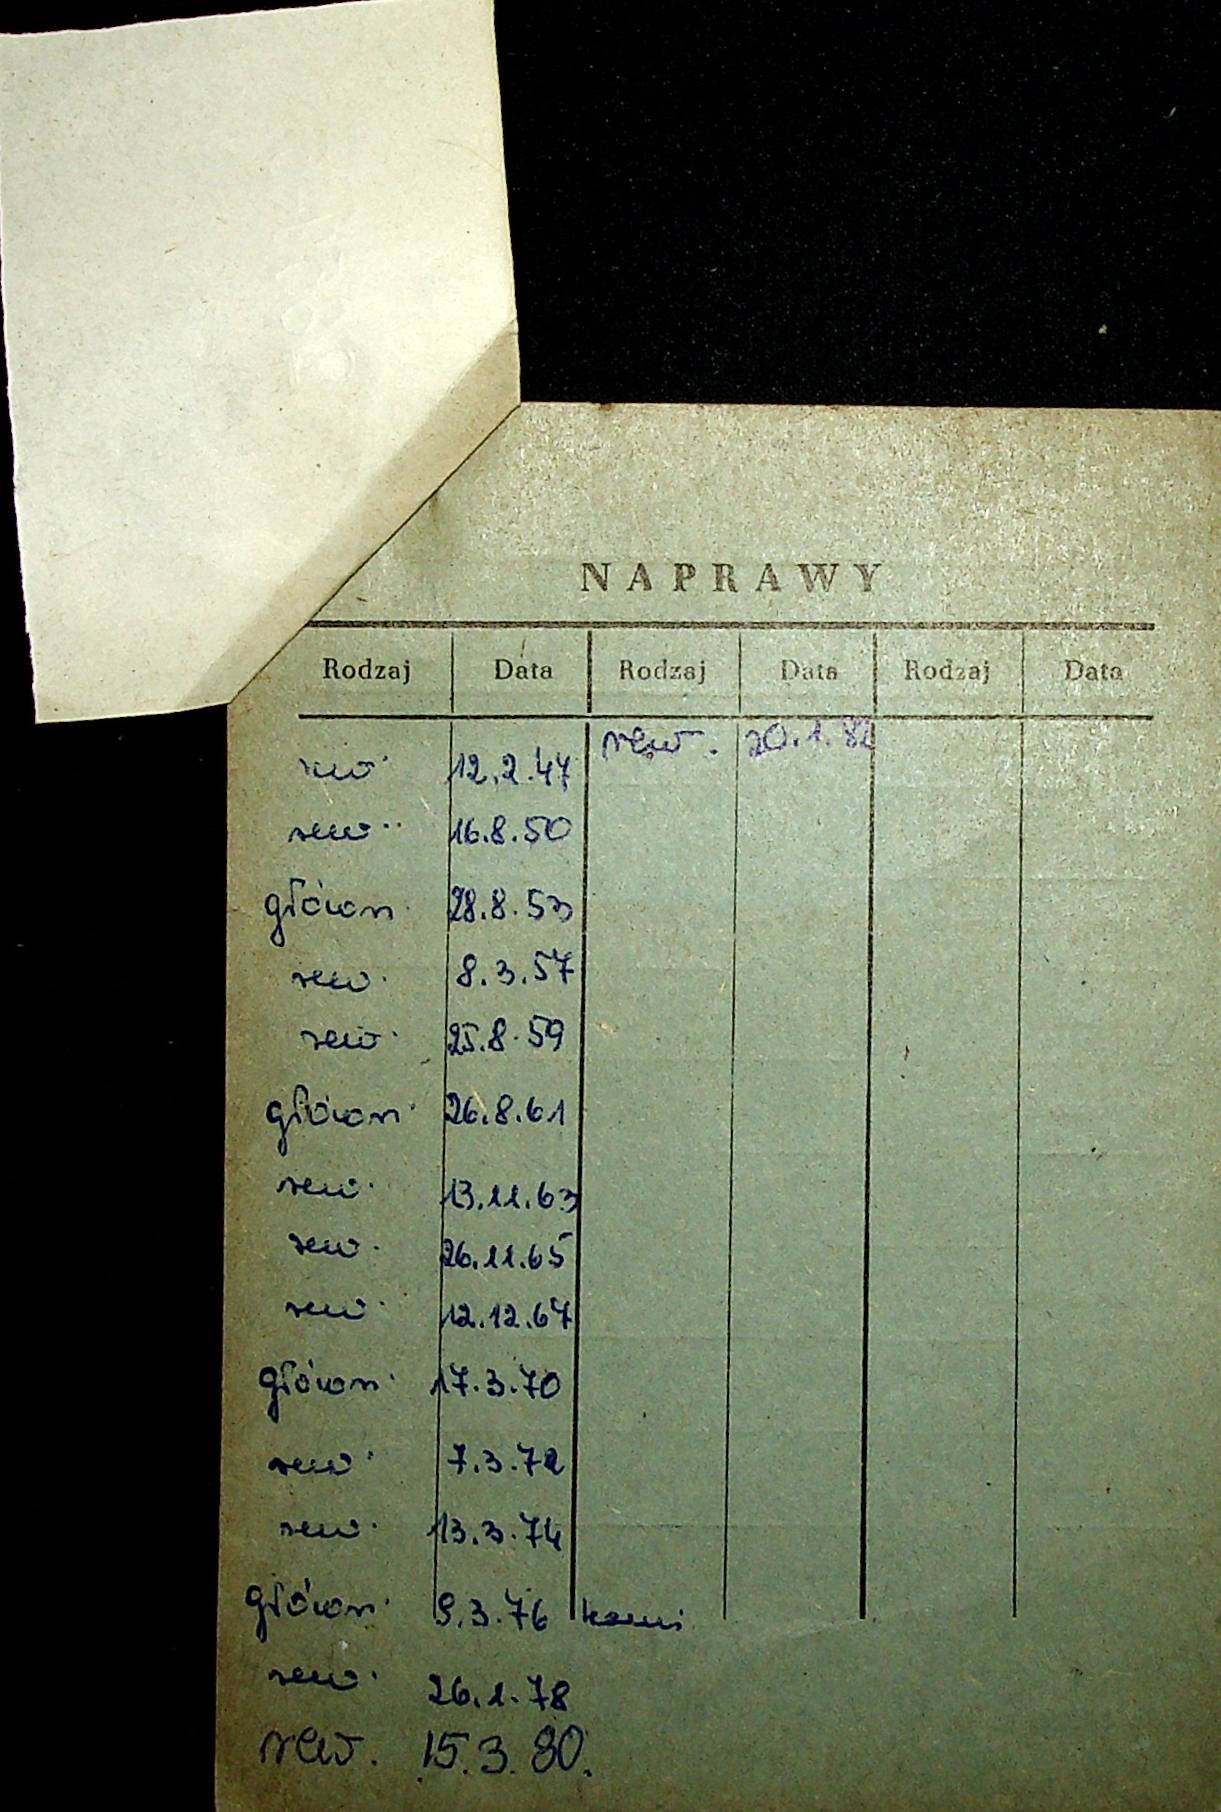 NAPRAWY
Rodzaj Data Rodzaj Data Rodzaj Data
rew. 12.2.47 rew. 20.1.82
rew. 16.8.50
główn. 28.8.53
rew. 8.3.57
rew. 25.8.59
główn. 26.8.61
rew. 13.11.63
rew. 26.11.65
rew. 12.12.67
główn. 17.3.70
rew. 7.3.72
rew. 13.3.74
główn. 9.3.76
rew. 26.1.78
rew. 15.3.80.